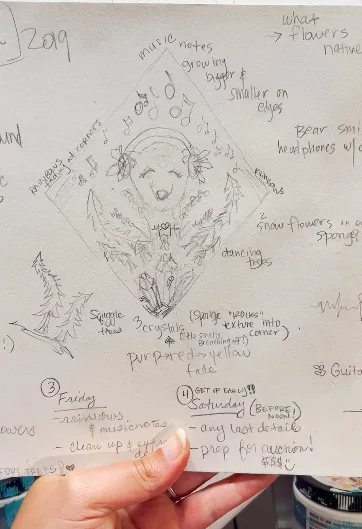 2019
what
→ flowers
native
music notes
growing
bigger &
smaller on
edges
Bear smi
headphones w/
rainbows
framing corners
rainbows
2 snow flowers in
sponge
dancing
trees
Squiggle
trees
3 crystals
(little shells
breaking off!)
(sponge "ROCKS"
texture into
corner)
purp→red→yellow
fade
Guita
③ Friday
- rainbows
& musicnotes
- clean up &
④ GET UP EARLY!!
Saturday (BEFORE NOON)
- any last details
- prep for auction!
$$$
owers
TREES!